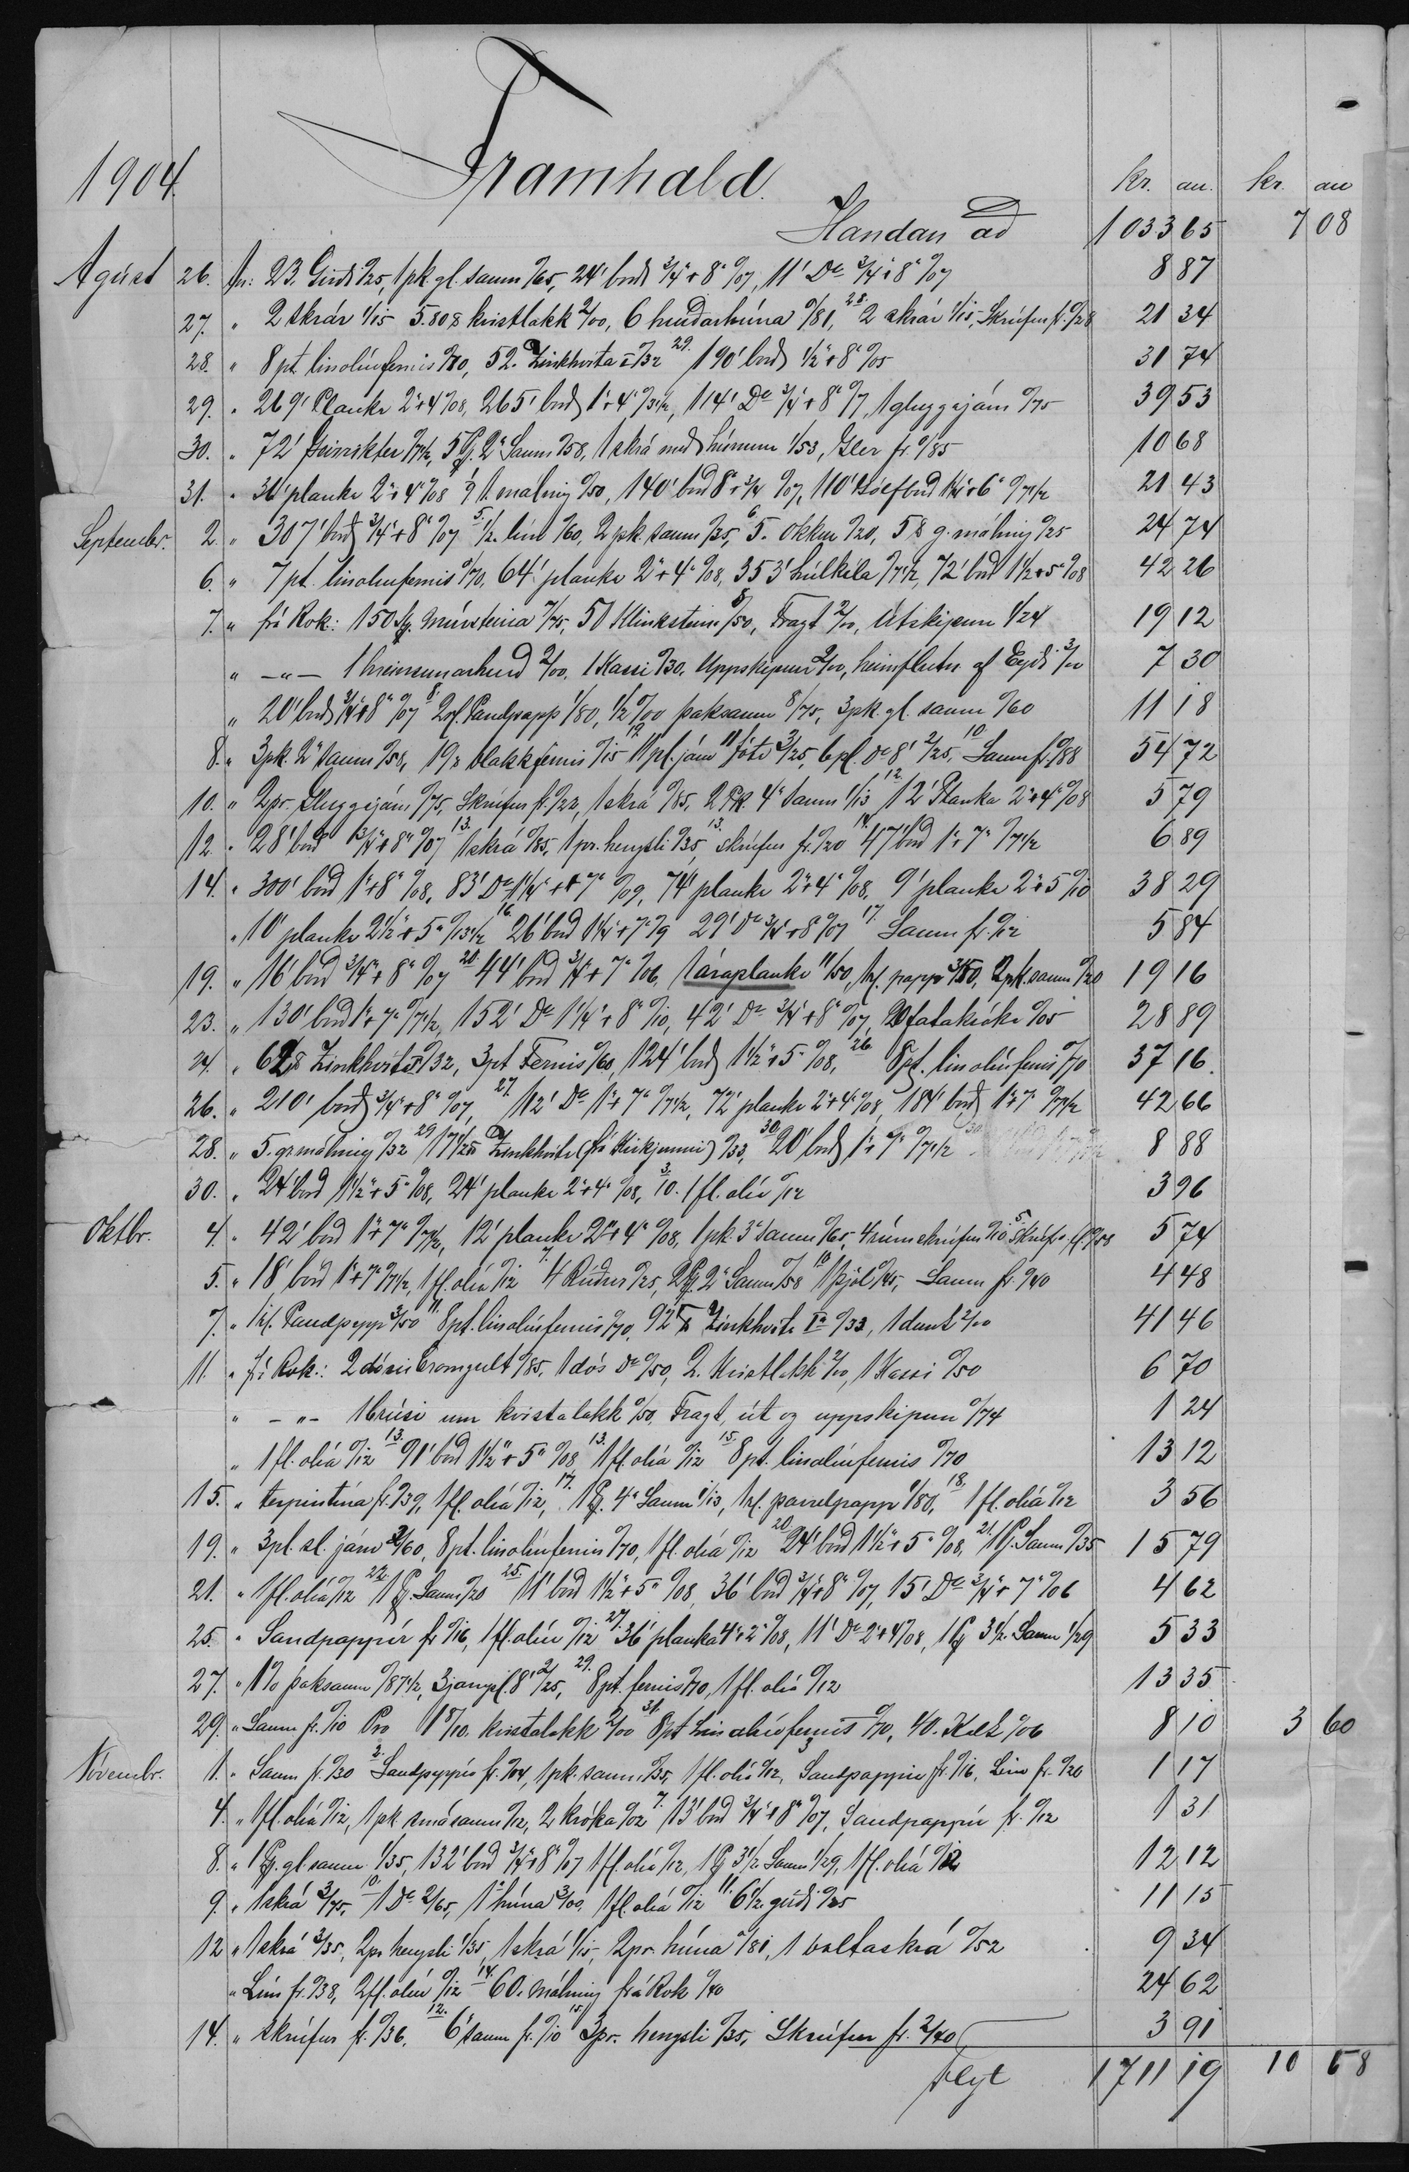 1904.
Framhald.
kr. au. kr. au
Handan að 1033 65 7 08
Agúst 26. pr: 23. Girdi %25, 1 pk. gl. saum %65, 24' bord 3/4"+8" %07, 11' Do 3/4"+8" %07 8 87
27. " 2 skrár 1/15 5.80 kvistlakk 2/00, 6 hurdarhúna %81, 28. 2 skrár 1/15, Skrúfur fr. %28 21 34
28. " 8 pt. linolíufernis %70, 52. Zinkhvíta %32 29. 190' bord 1/2"+8" %05 31 74
29. " 269' Planke 2"+4" %08, 265' bord 1"+4" 114' Do 3/4"+8" %7, 1 gluggajárn %75 39 53
30. " 72' 5 2" Saum %58, 1 skrá med húnum 1/53, Gler fr. %85 10 68
31. " planke 2"+4" %08 málning %50, 140' bord 8"+3/4 %07, 110' Gólfbord 1 1/4"+6" %7 1/2 21 43
Septembr. 2. " 307' bord 3/4"+8" %07 5. 1/2. lím %60, 2 pk. saum %35, 6. 5. okkur %20, 5 g. málning %25 24 74
6. " 7 pt. linoliufernis %70, 64' planke 2"+4" %08, 353' húlkíla %7 1/2, 72' bord 1 1/2+5" %08 42 26
7. " frá Rvk: 150 stg. múrsteina 7/75, 50 Klinksteina %50, Fragt 2/00, Útskipun 1/24 19 12
" -"- 1 hreinsunarhurd 2/00, 1 Kassi %30, Uppskipun heimflutn. af Eyði 7 30
" 20' bord 3/4"+8" %07 8. 2 rl. Pandpapp 1/80, 1/2 % þaksaum 8/75, 3 pk. gl. saum %60 11 18
8. " 3 pk. 2" saum %58, 19 blakkfernis %15 12. 11 pl. járn 11 fóta 3/25, 6 pl. Do 8' 2/25, 10. Saum f. %88 54 72
10. " 2 pr. Gluggajárn %75, Skrúfur fr. %22, 1 skrá %85, 2 Pk. 4" saum 1/13 12. 12' Planka 2"+4" %08 5 79
12. " 28' bord 3/4"+8" %07 13. 1 skrá %85, 1 pr. hengsli %35, 13. skrúfur fr. %20 14. 47' bord 1"+7" %7 1/2 6 89
14. " 300' bord 1"+8" %08, 83' Do 1 1/4"+7" %09, 74' planke 2"+4" %08, 9' planke 2"+5 %10 38 29
" 10' planke 2 1/2"+5" %13 1/2 16. 26' bord 1 1/4"+7" %9 29' Do 3/4"+8 %07 17. Saum fr. %12 5 84
19. " 16' bord 3/4"+8" %07 20. 44' bord 3/4"+7" %06, 1 áraplanke 11/50, 1 rl. pappi 3/50, 2 pk. saum %20 19 16
23. " 130' bord 1"+7" %7 1/2, 152' Do 1 1/4"+8" %10, 42' Do 3/4"+8" %07, 20 fatakróka %05 28 89
24. " 62 Zinkhvíta %32, 3 pt Fernis %60, 124' bord 1 1/2"+5" %08, 26. 8 pt. linolíufernis %70 37 16.
26. " 210' bord 3/4"+8" %07 27. 112' Do 1"+7" %7 1/2, 72' planke 2"+4" %08, 184' bord 1"+7" %7 1/2 42 66
28. " 5. gr. málning %32 29. 17 1/2 Zinkhvíta (frá Kirkjunni) %33, 30. 20' bord 1"+7" %7 1/2 8 88
30. " 24' bord 1 1/2"+5" %08, 24' planke 2"+4" %08, 3. 10. 1 fl. olía %12 3 96
Oktbr. 4. " 42' bord 1"+7" %7 1/2, 12' planke 2"+4" %08, 1 pk. 3" saum %65, 4 rúmskrúfur %10 5. Skrúfur 5 74
5. " 18' bord 1"+7" %7 1/2, 1 fl. olía %12 7. 4 Rúdur %25, 2 2" Saum %58 10. 1 þjöl %45, Saum fr. %40 4 48
7. " 1 rl. Pandpapp 3/50 11. 8 pt. linolíufernis %70, 92 Zinkhvíta Ia %33, 1 dunk 2/00 41 46
11. " frá Rvk.: 2 dósir Cromgult %85, 1 dós Do %50, 2. Kvistlakk 2/00, 1 Kassi %50 6 70
" -"- 1 brúsi um kvistalakk %50, Fragt, út og uppskipun %74 1 24
" 1 fl. olía %12 13. 91' bord 1 1/2"+5" %08 13. 1 fl. olía %12 15. 8 pt. linolíufernis %70 13 12
15. " terpintína fr. %39, 1 fl. olía %12, 17. 1 4" Saum 1/13, 1 rl. panelpapp 1/80, 18. 1 fl. olía %12 3 56
19. " 3 pl. sl. járn 2/60, 8 pt. linolíufernis %70, 1 fl. olía %12 20. 24' bord 1 1/2"+5" %08, 21. 1 Saum %35 15 79
21. " 1 fl. olía %12 22. 1 Saum %20 25. 11' bord 1 1/2"+5" %08, 36' bord 3/4"+8" %07, 15' Do 3/4"+7" %06 4 62
25. " Sandpappír fr %16, 1 fl. olíu %12 27. 36' planka 4"+2" %08, 11' Do 2"+4" %08, 1 3 1/2" Saum 1/29 5 33
27. " 1 % þaksaum %87 1/2, 3 járnpl. 8' 2/25, 29. 8 pt. fernis %70, 1 fl. olía %12 13 35
29. " Saum fr. %10 Pro 1 8/10. kvistalakk 2/00 31. 8 pt Linolíufernis %70, 40. Kalk %06 8 10 3 60
Nóvembr. 1. " Saum fr. %30 2. Sandpappír fr. %04, 1 pk. saum %35, 1 fl. olía %12, 3. Sandpappír fr %16, Lím fr. %20 1 17
4. " 1 fl. olía %12, 1 pk smásaum %12, 2 króka %02 7. 13' bord 3/4"+8" %07, Sandpappír fr. %12 1 31
8. " 1 gl. saum 1/35, 132' bord 3/4"+8" %07 1 fl. olía %12, 1 3 1/2 Saum 1/29, 1 fl. olía %12 12 12
9. " 1 skrá 3/75, 10. 1 Do 2/65, 1 húna 3/00, 1 fl. olía %12 11. 6 1/2. girdi %25 11 15
12 " 1 skrá 3/35, 2 pr hengsli 1/35, 1 skrá 1/15, 2 pr. húna %81, 1 boltaskrá %52 9 34
" Lím fr. %38, 2 fl. olíu %12 14. 60. málning frá Rvk %40 24 62
14. " skrúfur fr. %36. 12. 6" saum fr. %10 15. 3 pr. hengsli %35, Skrúfur fr. 2/40 3 91
Flyt 1711 19 10 68